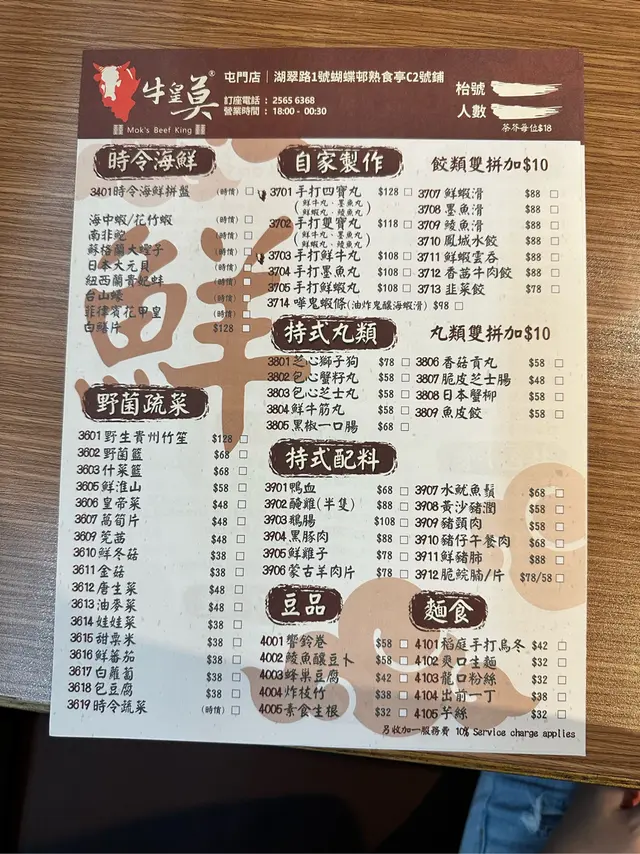 牛皇莫®
Mok's Beef King
屯門店｜湖翠路1號蝴蝶邨熟食亭C2號鋪
訂座電話：2565 6368
營業時間：18:00 - 00:30
枱號
人數
茶芥每位$18
時令海鮮
3401 時令海鮮拼盤 (時價)
海中蝦/花竹蝦 (時價)
南非鮑 (時價)
蘇格蘭大蟶子 (時價)
日本大元貝 (時價)
紐西蘭貴妃蚌 (時價)
台山蠔 (時價)
菲律賓花甲皇 (時價)
白鱔片 $128
鮮
野菌蔬菜
3601 野生貴州竹笙 $128
3602 野菌籃 $68
3603 什菜籃 $68
3605 鮮淮山 $58
3606 皇帝菜 $48
3607 萵筍片 $48
3609 芫茜 $48
3610 鮮冬菇 $38
3611 金菇 $38
3612 唐生菜 $48
3613 油麥菜 $48
3614 娃娃菜 $38
3615 甜粟米 $38
3616 鮮蕃茄 $38
3617 白蘿蔔 $38
3618 包豆腐 $38
3619 時令蔬菜 (時價)
自家製作 餃類雙拼加$10
3701 手打四寶丸 $128
(鮮牛丸、墨魚丸
鮮蝦丸、鯪魚丸)
3702 手打雙寶丸 $118
(鮮牛丸、墨魚丸
鮮蝦丸、鯪魚丸)
3703 手打鮮牛丸 $108
3704 手打墨魚丸 $108
3705 手打鮮蝦丸 $108
3714 嘩鬼蝦條(油炸鬼釀海蝦滑) $98
3707 鮮蝦滑 $88
3708 墨魚滑 $88
3709 鯪魚滑 $88
3710 鳳城水餃 $88
3711 鮮蝦雲吞 $88
3712 香茜牛肉餃 $88
3713 韮菜餃 $78
特式丸類 丸類雙拼加$10
3801 芝心獅子狗 $78
3802 包心蟹籽丸 $58
3803 包心芝士丸 $58
3804 鮮牛筋丸 $58
3805 黑椒一口腸 $68
3806 香菇貢丸 $58
3807 脆皮芝士腸 $48
3808 日本蟹柳 $58
3809 魚皮餃 $58
特式配料
3901 鴨血 $68
3902 醃雞(半隻) $88
3903 鵝腸 $108
3904 黑豚肉 $88
3905 鮮雞子 $78
3906 蒙古羊肉片 $78
3907 水魷魚鬚 $68
3908 黃沙豬潤 $58
3909 豬頸肉 $58
3910 豬仔午餐肉 $68
3911 鮮豬肺 $88
3912 脆脘腩/片 $78/58
豆品
4001 響鈴卷 $58
4002 鯪魚釀豆卜 $58
4003 蜂巢豆腐 $42
4004 炸枝竹 $38
4005 素食生根 $32
麵食
4101 稻庭手打烏冬 $42
4102 爽口生麵 $32
4103 龍口粉絲 $32
4104 出前一丁 $38
4105 芋絲 $32
另收加一服務費 10% Service charge applies